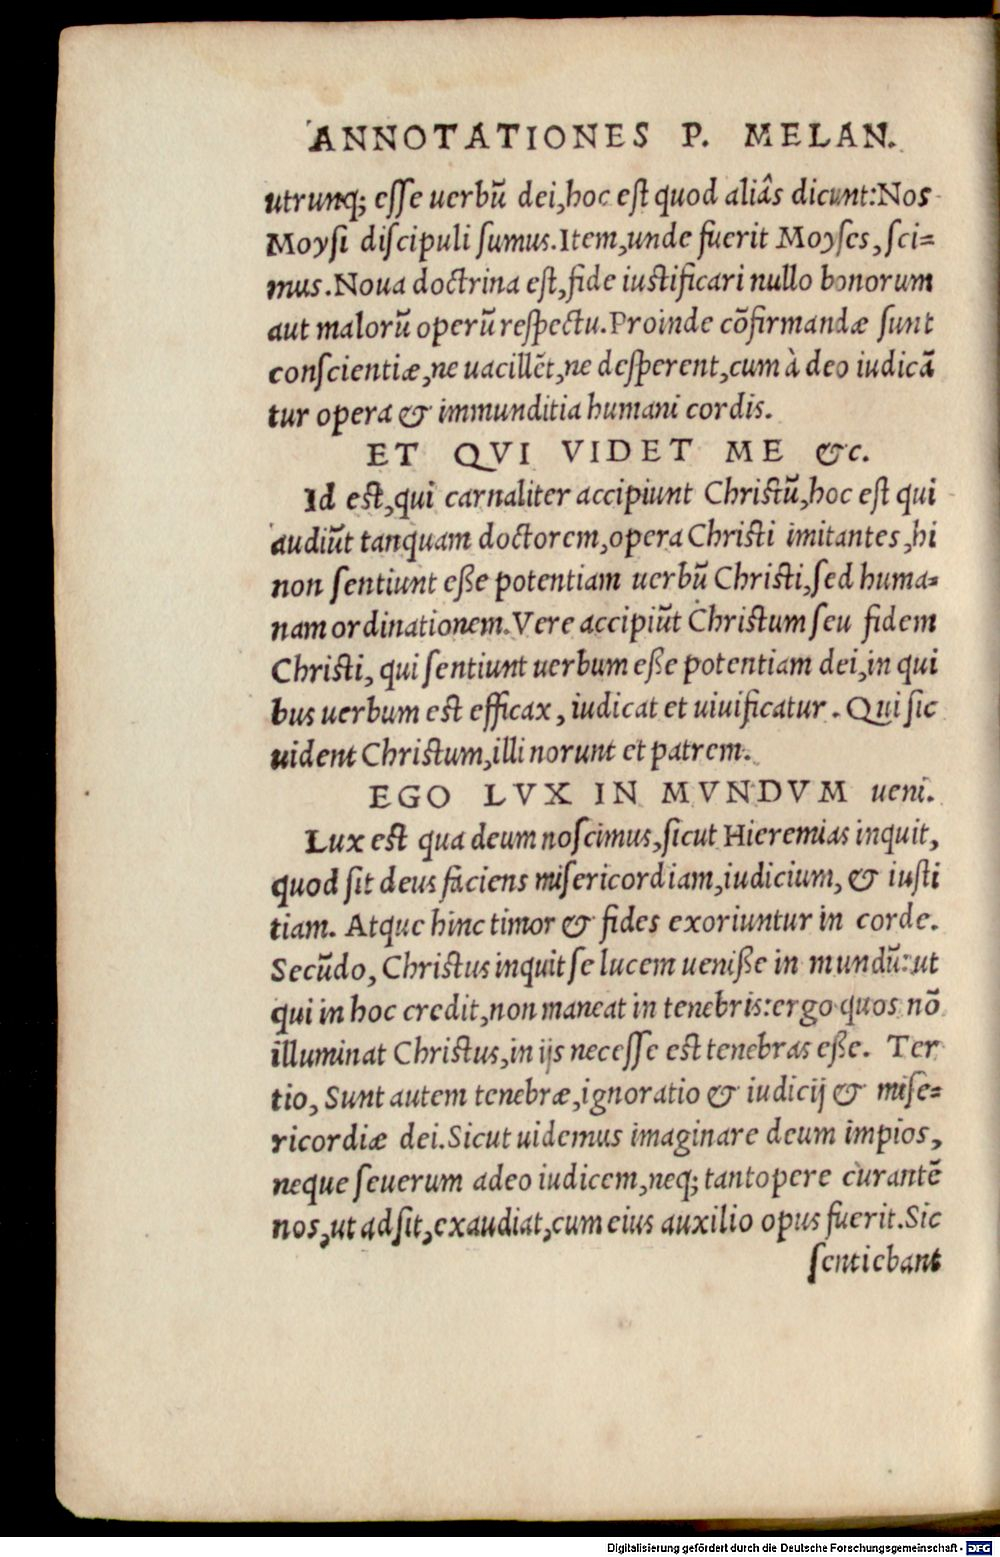 ANNOTATIONES P. MELAN.
utrunq; esse uerbū dei,hoc est quod aliâs dicunt:Nos
Moysi discipuli sumus.Item,unde fuerit Moyses,sci=
mus.Noua doctrina est,fide iustificari nullo bonorum
aut malorū operū respectu.Proinde cōfirmandæ sunt
conscientiæ,ne uacillēt,ne desperent,cum à deo iudicā
tur opera & immunditia humani cordis.
ET QVI VIDET ME &c.
Id est,qui carnaliter accipiunt Christū,hoc est qui
audiūt tanquam doctorem,opera Christi imitantes,hi
non sentiunt eße potentiam uerbū Christi,sed huma=
nam ordinationem.Vere accipiūt Christum seu fidem
Christi, qui sentiunt uerbum eße potentiam dei,in qui
bus uerbum est efficax, iudicat et uiuificatur. Qui sic
uident Christum,illi norunt et patrem.
EGO LVX IN MVNDVM ueni.
Lux est qua deum noscimus,sicut Hieremias inquit,
quod sit deus faciens misericordiam,iudicium, & iusti
tiam. Atque hinc timor & fides exoriuntur in corde.
Secūdo, Christus inquit se lucem ueniße in mundū:ut
qui in hoc credit,non maneat in tenebris:ergo quos nō
illuminat Christus,in ijs necesse est tenebras eße. Ter
tio, Sunt autem tenebræ,ignoratio & iudicij & mise=
ricordiæ dei.Sicut uidemus imaginare deum impios,
neque seuerum adeo iudicem,neq; tantopere curantē
nos,ut adsit,exaudiat,cum eius auxilio opus fuerit.Sic
sentiebant
Digitalisierung gefördert durch die Deutsche Forschungsgemeinschaft - DFG